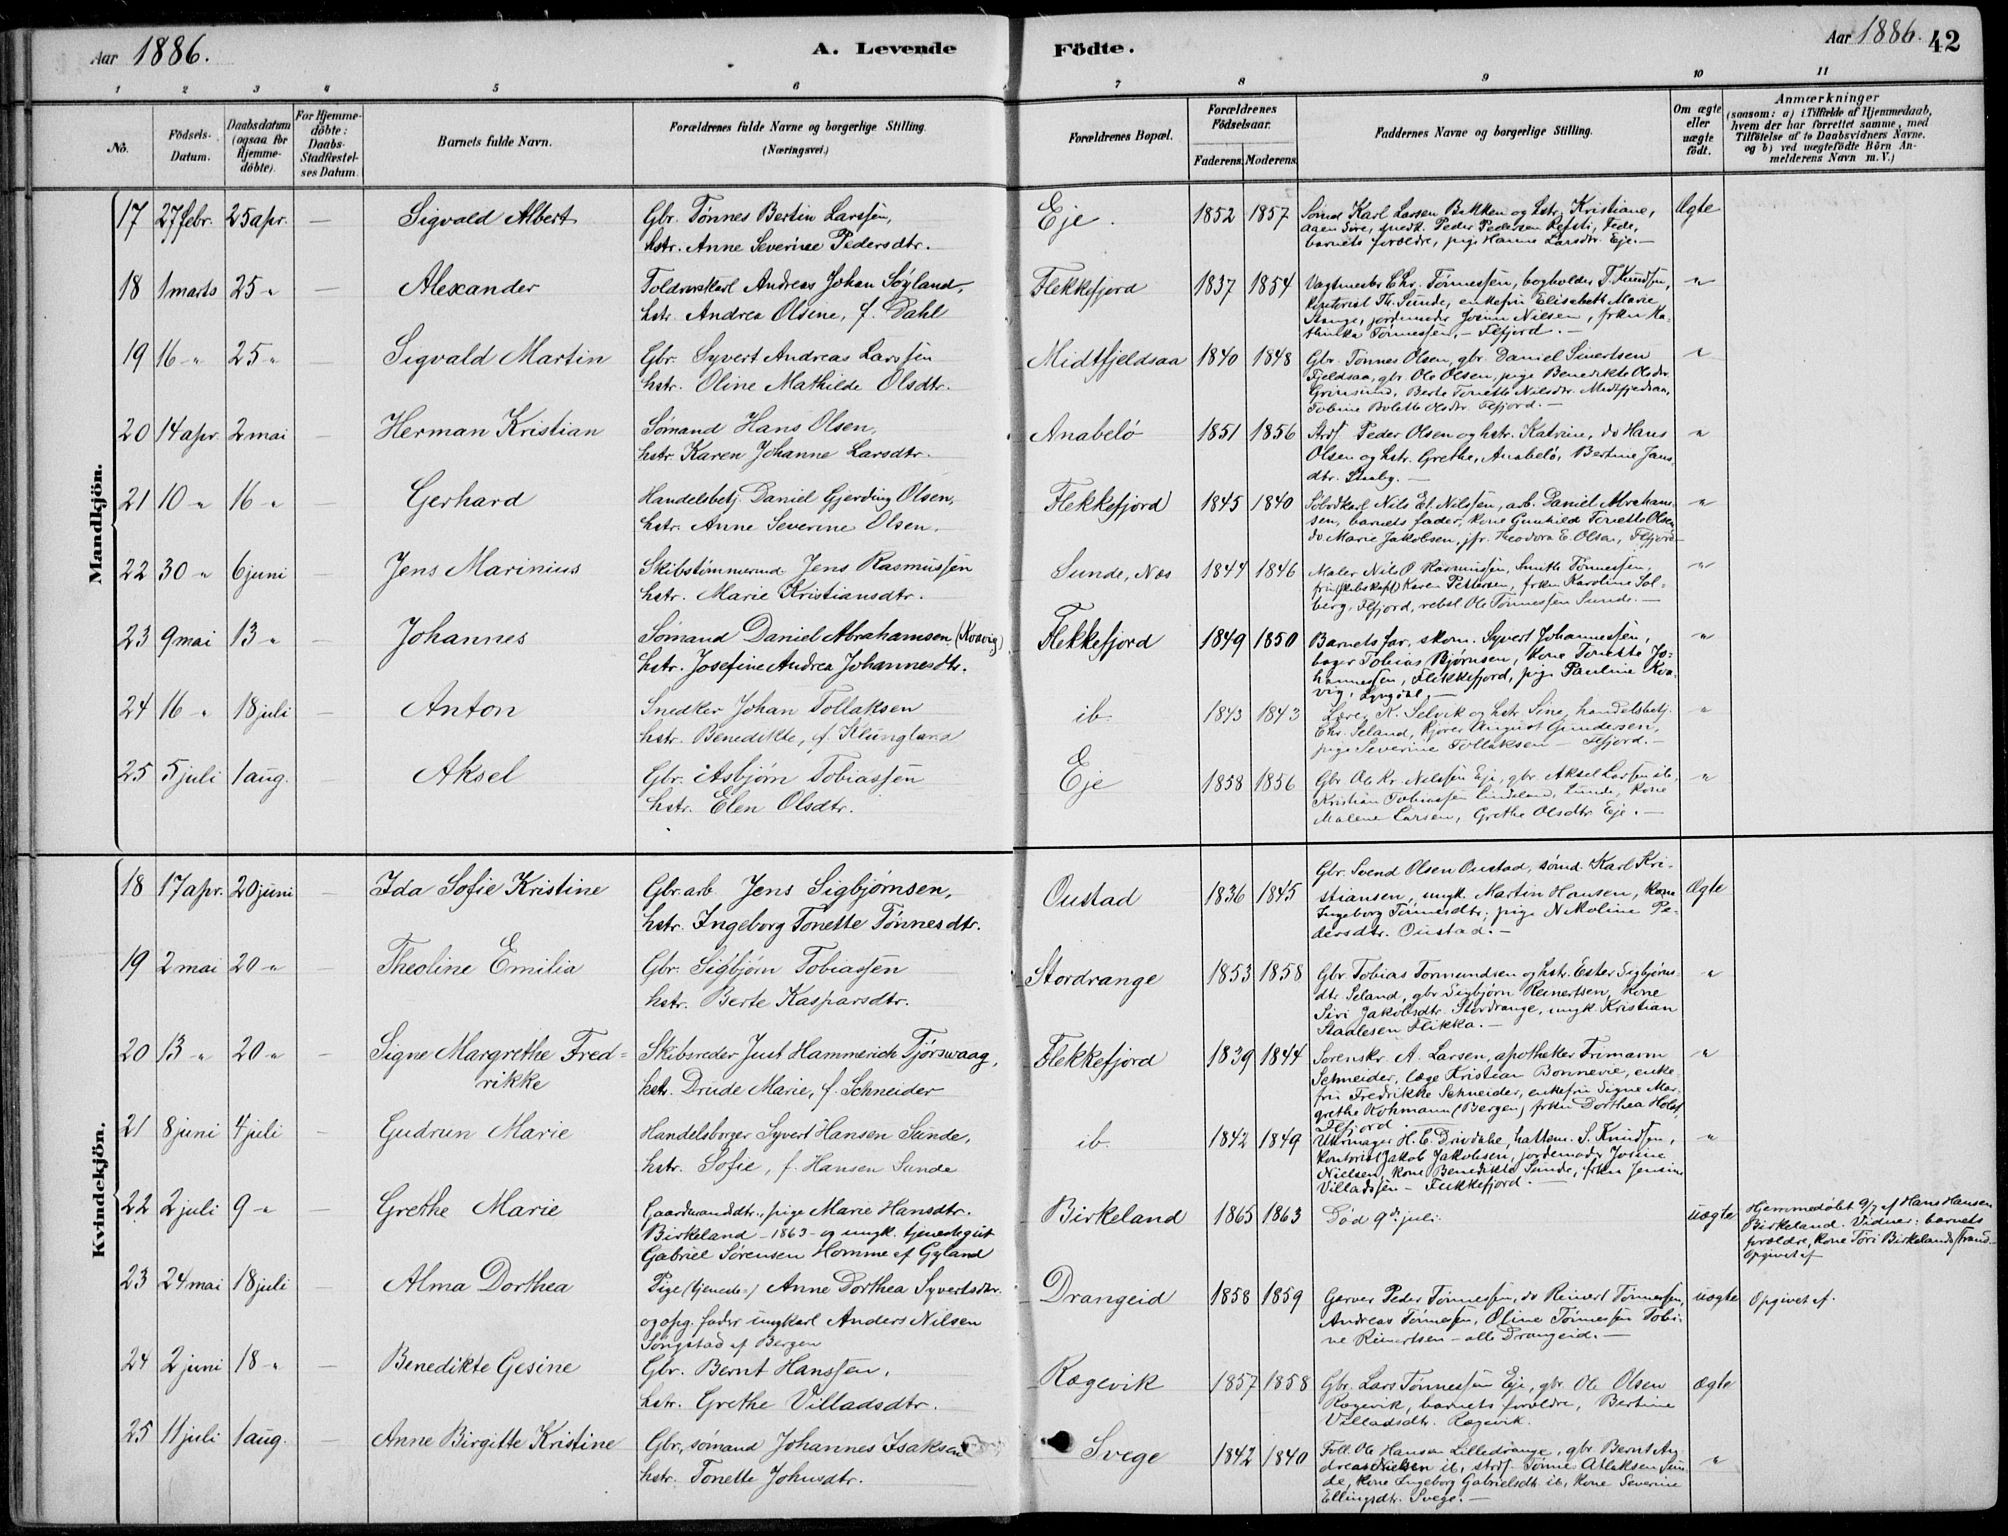 Aar 1886. A. Levende Födte. Aar 1886. 42
1 2 3 4 5 6 7 8 9 10 11
No.
Födsels-Datum.
Daabsdatum (ogsaa för Hjemmedöbte).
For Hjemmedöbte: Daabs-Stadfæstelses Datum.
Barnets fulde Navn.
Forældrenes fulde Navne og borgerlige Stilling.
(Næringsvei.)
Forældrenes Bopæl.
Forældrenes Födselsaar.
Faderens. Moderens.
Faddernes Navne og borgerlige Stilling.
Om ægte eller uægte födt.
Anmærkninger
(saasom: a) i Tilfælde af Hjemmedaab,
hvem der har forrettet samme, med
Tilföielse af to Daabsvidners Navne.
og b) ved uægtefödte Börn An-
melderens Navn m. V.)
Mandkjön.
17 27 febr. 25 apr. — Sigvald Albert Gbr. Tønnes Bertin Larssen, Eje. 1852 1857 Sømd Karl Larsen Bakken og hstr. Kristiane, Ægte
hstr. Anne Severine Pedersdtr.
Peder Pedersen Fede,
barnets forældre, pige Hanne Larsdtr. Eje. —
18 1 marts 25 " — Alexander Andreas Johan Søyland, Flekkefjord 1837 1854 Vagtmester Chr. Tønnessen, bogholder T. Knudsen, "
hstr. Andrea Olsine, f. Dahl
kontorist Th. Sunde, enkefru Elisabeth Marie
Stange, jordemoder Josine Nielsen, frkn Ka-
thinka Tønnessen, — Flfjord. —
19 16 " 25 " — Sigvald Martin Gbr. Syvert Andreas Larssen Midtfjeldsaa 1840 1848 Gbr. Tønnes Olsen, gbr. Daniel Sivertsen "
hstr. Oline Mathilde Olsdtr.
Fjeldsaa, gbr. Ole Olsen, pige Benedikte Olsdtr.
Grimsund, Berte Tonette Nilsdtr. Midtfjedsaa,
Tobine Bolette Flfjord. —
20 14 apr. 2 mai — Herman Kristian Sømand Hans Olsen, Anabelø 1851 1856 Strdf. Peder Olsen og hstr. Katrine, do Hans "
hstr. Karen Johanne Larsdtr.
Olsen og hstr. Grethe, Anabelø, Bertine Jans-
dtr.
21 10 " 16 " — Gerhard Handelsbetj. Daniel Gjerding Olsen, Flekkefjord 1845 1840 Nils El. Nilssen, arb. Daniel Abraham- "
hstr. Anne Severine Olsen.
sen, barnets fader, kone Gunhild Tonette Olsen,
do Marie Jakobsen, jfr. Theodora E. Olsen, Flfjord —
22 30 " 6 juni — Jens Marinius Skibstømmermd. Jens Rasmussen Sunde, Næs 1844 1846 Maler Nils O. Rasmussen, Smith Tønnessen, "
hstr. Marie Kristiansdtr.
fru (skibskapt.) Karen Pettersen, frkn Karoline Sol-
berg, Flfjord, rebsl. Ole Tønnessen Sunde. —
23 9 mai 13 " — Johannes Sømand Daniel Abrahamsen (Kvavig) Flekkefjord 1849 1850 Barnets far, skom. Syvert Johannessen, "
hstr. Josefine Andrea Johannesdtr.
bager Tobias Bjørnsen, kone Tonette Jo-
hannessen, Flekkefjord, pige Pauline Kva-
vig, Lyngdal. —
24 16 " 18 juli — Anton Snedker Johan Tollaksen ib. 1843 1843 Lærer N. Selvik og hstr. Sine, handelsbetj. "
hstr. Benedikte, f. Klungland
Chr. Seland, kjører August Gundersen,
pige Severine Tollaksen — Flfjord. —
25 5 juli 1 aug. Aksel Gbr. Asbjørn Tobiassen Eje 1858 1856 Gbr. Ole Kr. Nilssen Eje, gbr. Aksel Larsen ib, "
hstr. Elen Olsdtr.
Kristian Tobiassen Lindeland, Lunde, kone
Malene Larsen, Grethe Olsdtr. Eje. —
Kvindekjön.
18 17 apr. 20 juni — Ida Sofie Kristine Gbr. arb. Jens Sigbjørnsen, Oustad 1836 1845 Gbr. Svend Olsen Oustad, sømd. Karl Kri- Ægte
hstr. Ingeborg Tonette Tønnesdtr.
stiansen, ungk. Martin Hansen, kone
Ingeborg Tønnesdtr., pige Nikoline Pe-
dersdtr. Oustad. —
19 2 mai 20 " — Theoline Emilia Gbr. Sigbjørn Tobiassen Stordrange 1853 1858 Gbr. Tobias Tormundsen og hstr. Ester Sigbjørns- "
hstr. Berte Kasparsdtr.
dtr. Seland, gbr. Sigbjørn Reinertsen, kone
Siri Jakobsdtr. Stordrange, ungk. Kristian
Staalesen Flikka. —
20 13 " 20 " — Signe Margrethe Fred- Skibsreder Just Hammerich Tjørswaag, Flekkefjord 1839 1844 Sorenskr. A. Larsen, apotheker Frimann "
rikke hstr. Drude Marie, f. Schneider
Schneider, læge Kristian Bonnevie, enke-
fru Fredrikke Schneider, enkefru Signe Mar-
grethe Kohmann (Bergen) frkn Dorthea Holst,
Flfjord.
21 8 juni 4 juli — Gudrun Marie Handelsborger Syvert Hansen Sunde, ib. 1842 1849 Uhrmager H. C. Drivdahl, hattem. S. Knudsen, "
hstr. Sofie, f. Hansen Sunde
kontorist Jakob Jakobsen, jordemoder Josine
Nielsen, kone Benedikte Sunde, frkn Jensine
Villadssen — Flekkefjord. —
22 2 juli 9 " — Grethe Marie Gaardmandsdtr., pige Marie Hansdtr. Birkeland 1865 1863 Død 9de juli. uægte Hjemmedøbt 9/7 af Hans Hansen
Birkeland — 1863 — og ungk. tjenestegut
Gabriel Sørensen Homme af Gyland
Birkeland. Vidner: barnets
forældre, kone Tori Birkeland
Opgivet af
23 24 mai 18 juli — Alma Dorthea Pige (tjenede) Anne Dorthea Syvertsdtr. Drangeid 1858 1859 Garver Peder Tønnessen, do Reinert Tønnessen, uægte Opgivet af.
og opg. fader ungkarl Anders Nilsen
Songstad af Bergen
Andreas Tønnessen, Oline Tønnessen Tobi-
ne Reinertsen — alle Drangeid. —
24 2 juni 18 " — Benedikte Gesine Gbr. Bernt Hanssen, Rægevik 1857 1858 Gbr. Lars Tønnessen Eje, gbr. Ole Olsen ægte
hstr. Grethe Villadsdtr.
Rægevik, barnets forældre, Bertine
Villadsdtr. Rægevik.
25 11 juli 1 aug. — Anne Birgitte Kristine Gbr., sømand Johannes Isaksen Svege 1842 1840 Ole Hansen Lilledrange, gbr. Bernt An- "
hstr. Tonette Johnsdtr.
dreas Nielsen ib., strdf. Tønnes Atlaksen Sun-
de, kone Ingeborg Gabrielsdtr. ib., kone Severine
Ellingsdtr. Svege. —